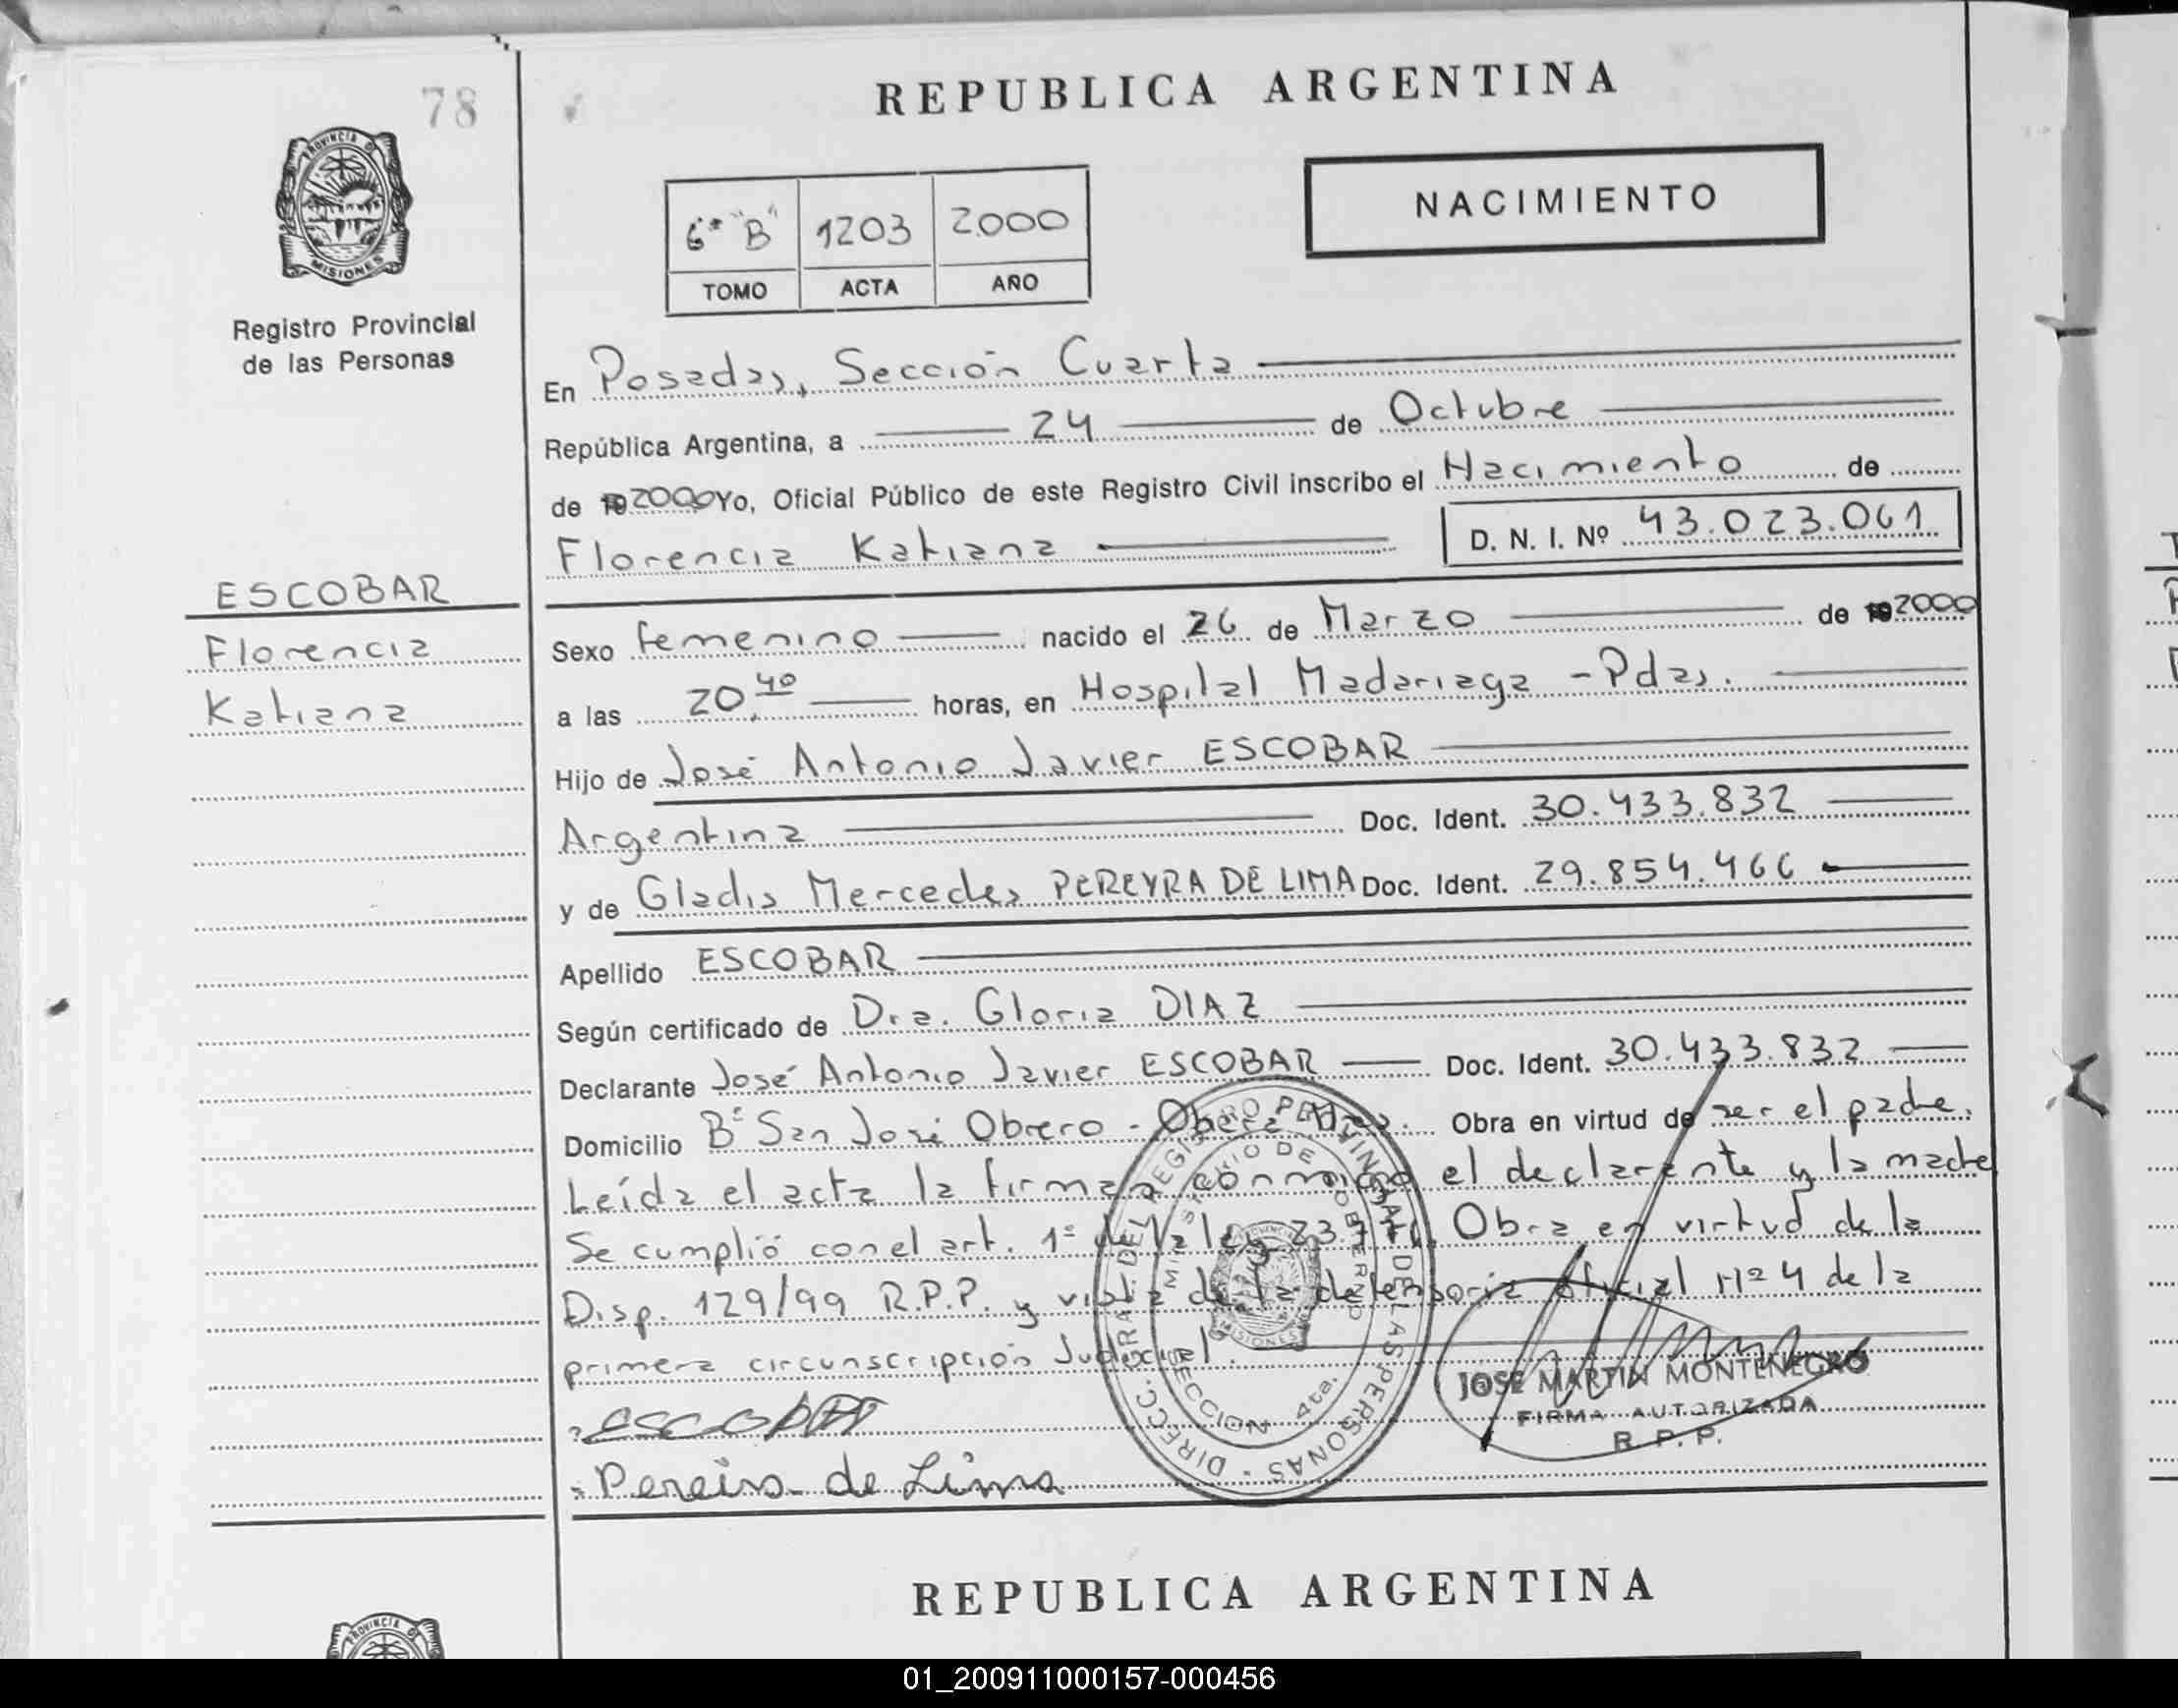 78
REPUBLICA ARGENTINA
PROVINCIA D
MISIONES
Registro Provincial
de las Personas
NACIMIENTO
6º "B" 1203 2000
TOMO ACTA AÑO
En Posadas, Sección Cuarta
República Argentina, a 24 de Octubre
de 19 2000 Yo, Oficial Público de este Registro Civil inscribo el Nacimiento de
Florencia Katiana D. N. I. Nº 43.023.061
ESCOBAR
Florencia
Katiana
Sexo femenino nacido el 26 de Marzo de 19 2000
a las 20,40 horas, en Hospital Madariaga - Pdas.
Hijo de José Antonio Javier ESCOBAR
Argentina Doc. Ident. 30.433.832
y de Gladis Mercedes PEREYRA DE LIMA Doc. Ident. 29.854.466
Apellido ESCOBAR
Según certificado de Dra. Gloria DIAZ
Declarante José Antonio Javier ESCOBAR Doc. Ident. 30.433.832
Domicilio Bº San José Obrero - Oberá Mnes. Obra en virtud de ser el padre.
Leída el acta la firman conmigo el declarante y la madre
Se cumplió con el art. 1º de la ley 23.776. Obra en virtud de la
Disp. 129/99 R.P.P. y vista de la defensoria oficial Nº 4 de la
primera circunscripción Judicial.
ESCOBAR
Pereira de Lima
DIRECC. GRAL. DEL REGISTRO PROVINCIAL DE LAS PERSONAS
MINISTERIO DE GOBIERNO
MISIONES
SECCION 4ta.
JOSE MARTIN MONTENEGRO
FIRMA AUTORIZADA
R. P. P.
REPUBLICA ARGENTINA
PROVINCIA D
01_200911000157-000456